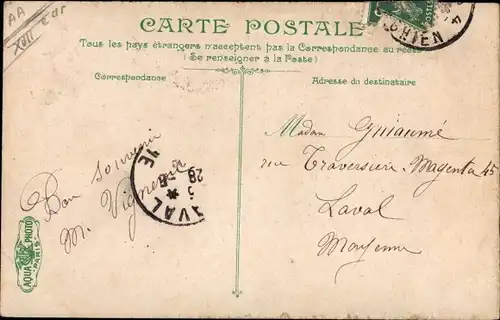 AA
XVII ear
CARTE POSTALE
Tous les pays étrangers n'acceptent pas la Correspondance au recto
(Se renseigner à la Poste)
Correspondance
Adresse du destinataire
POSTES
Bon souvenir
M.
AQUA PHOTO
PARIS
VAL
28
Madame Guiaumé
rue Traversière-Magenta 45
Laval
Mayenne